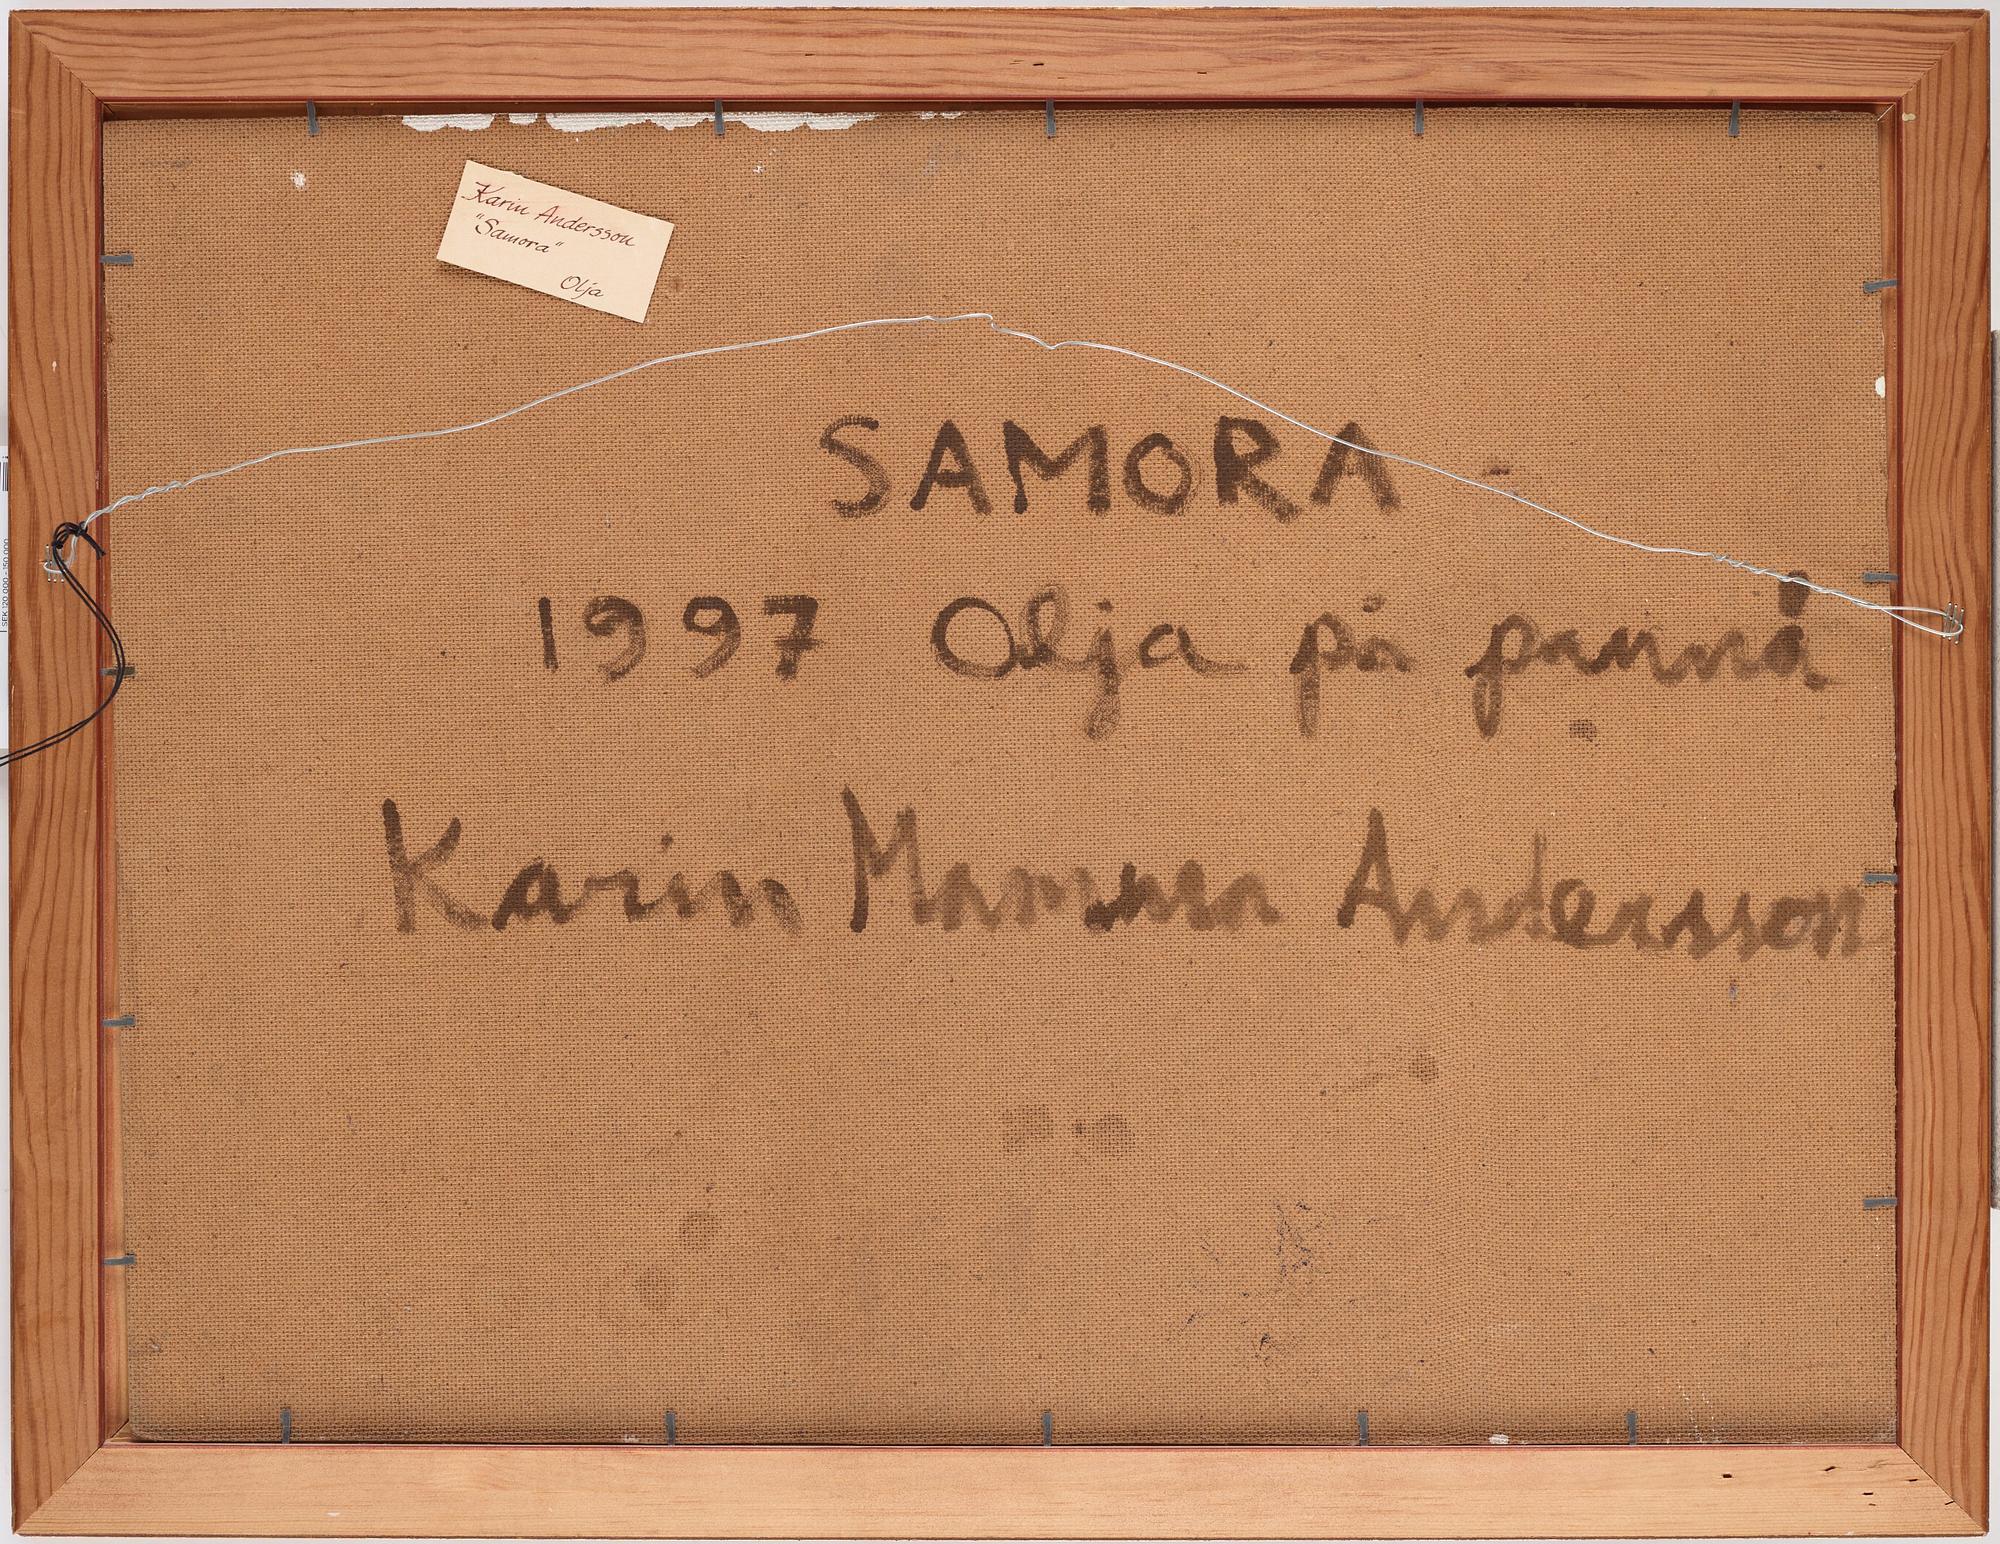 Karin Andersson
"Samora"
Olja
SAMORA
1997 Olja på pannå
Karin Mamma Andersson
SEK 120 000 - 150 000